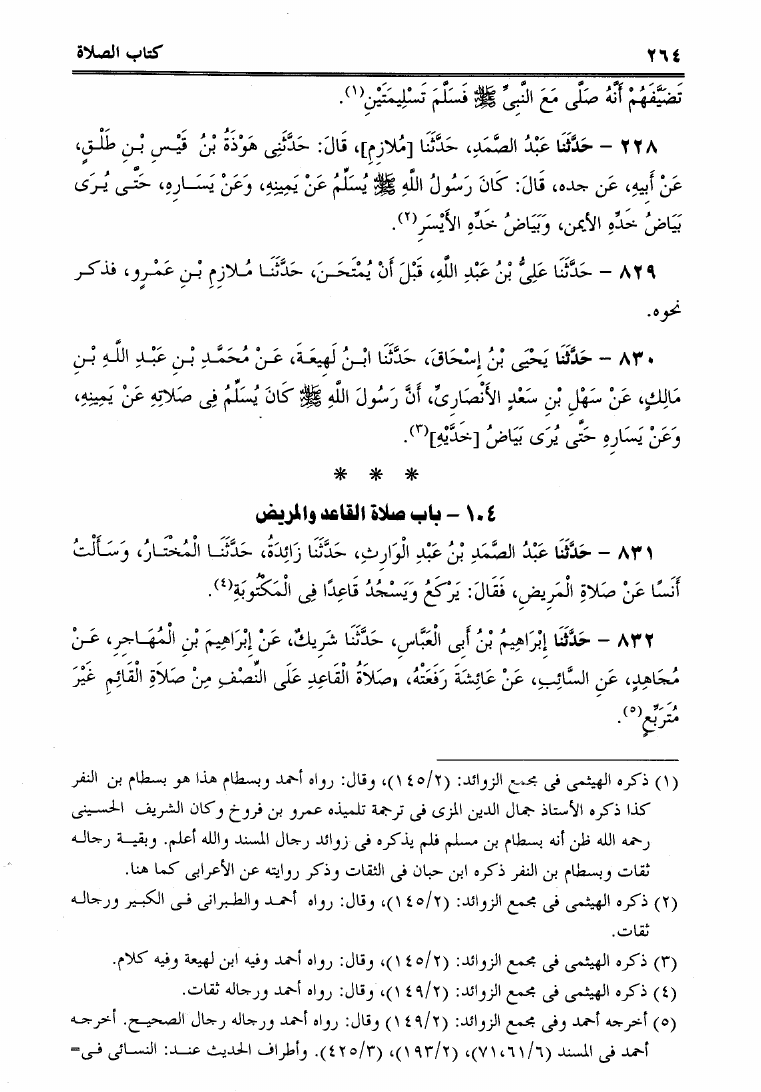 ٢٦٤
كتاب الصلاة
تَضَيَّفَهُمْ أَنَّهُ صَلَّى مَعَ النَّبِىِّ ﷺ فَسَلَّمَ تَسْلِيمَتَيْنِ(١).
٢٢٨ – حَدَّثَنا عَبْدُ الصَّمَدِ، حَدَّثَنَا [مُلازِم]، قَالَ: حَدَّثَنِى هَوْذَةُ بْنُ قَيْسِ بْنِ طَلْقٍ،
عَنْ أَبِيهِ، عَن جده، قَالَ: كَانَ رَسُولُ اللَّهِ ﷺ يُسَلِّمُ عَنْ يَمِينِهِ، وَعَنْ يَسَارِهِ، حَتَّى يُرَى
بَيَاضُ خَدِّهِ الأيمن، وَبَيَاضُ خَدِّهِ الأَيْسَرِ(٢).
٨٢٩ – حَدَّثَنَا عَلِىُّ بْنُ عَبْدِ اللَّهِ، قَبْلَ أَنْ يُمْتَحَنَ، حَدَّثَنَا مُلازِمِ بْنِ عَمْرٍو، فذكر
نحوه.
٨٣٠ – حَدَّثَنا يَحْيَى بْنُ إِسْحَاقَ، حَدَّثَنَا ابْنُ لَهِيعَةَ، عَنْ مُحَمَّدِ بْنِ عَبْدِ اللَّهِ بْنِ
مَالِكٍ، عَنْ سَهْلِ بْنِ سَعْدٍ الأَنْصَارِىِّ، أَنَّ رَسُولَ اللَّهِ ﷺ كَانَ يُسَلِّمُ فِى صَلاتِهِ عَنْ يَمِينِهِ،
وَعَنْ يَسَارِهِ حَتَّى يُرَى بَيَاضُ [خَدَّيْهِ](٣).
* * *
١٠٤ – باب صلاة القاعد والمريض
٨٣١ – حَدَّثَنا عَبْدُ الصَّمَدِ بْنُ عَبْدِ الْوَارِثِ، حَدَّثَنَا زَائِدَةُ، حَدَّثَنَا الْمُخْتَارُ، وَسَأَلْتُ
أَنَسًا عَنْ صَلاةِ الْمَرِيضِ، فَقَالَ: يَرْكَعُ وَيَسْجُدُ قَاعِدًا فِى الْمَكْتُوبَةِ(٤).
٨٣٢ – حَدَّثَنا إِبْرَاهِيمُ بْنُ أَبِى الْعَبَّاسِ، حَدَّثَنَا شَرِيكٌ، عَنْ إِبْرَاهِيمَ بْنِ الْمُهَاجِرِ، عَنْ
مُجَاهِدٍ، عَنِ السَّائِبِ، عَنْ عَائِشَةَ رَفَعَتْهُ، «صَلاةُ الْقَاعِدِ عَلَى النِّصْفِ مِنْ صَلاةِ الْقَائِمِ غَيْرَ
مُتَرَبِّعٍ(٥).
(١) ذكره الهيثمى فى مجمع الزوائد: (١٤٥/٢)، وقال: رواه أحمد وبسطام هذا هو بسطام بن النفر
كذا ذكره الأستاذ جمال الدين المزى فى ترجمة تلميذه عمرو بن فروخ وكان الشريف الحسينى
رحمه الله ظن أنه بسطام بن مسلم فلم يذكره فى زوائد رجال المسند والله أعلم. وبقية رجاله
ثقات وبسطام بن النفر ذكره ابن حبان فى الثقات وذكر روايته عن الأعرابى كما هنا.
(٢) ذكره الهيثمى فى مجمع الزوائد: (١٤٥/٢)، وقال: رواه أحمد والطبرانى فى الكبير ورجاله
ثقات.
(٣) ذكره الهيثمى فى مجمع الزوائد: (١٤٥/٢)، وقال: رواه أحمد وفيه ابن لهيعة وفيه كلام.
(٤) ذكره الهيثمى فى مجمع الزوائد: (١٤٩/٢)، وقال: رواه أحمد ورجاله ثقات.
(٥) أخرجه أحمد وفى مجمع الزوائد: (١٤٩/٢) وقال: رواه أحمد ورجاله رجال الصحيح. أخرجه
أحمد فى المسند (٧١،٦١/٦)، (١٩٣/٢)، (٤٢٥/٣). وأطراف الحديث عند: النسائى فى=